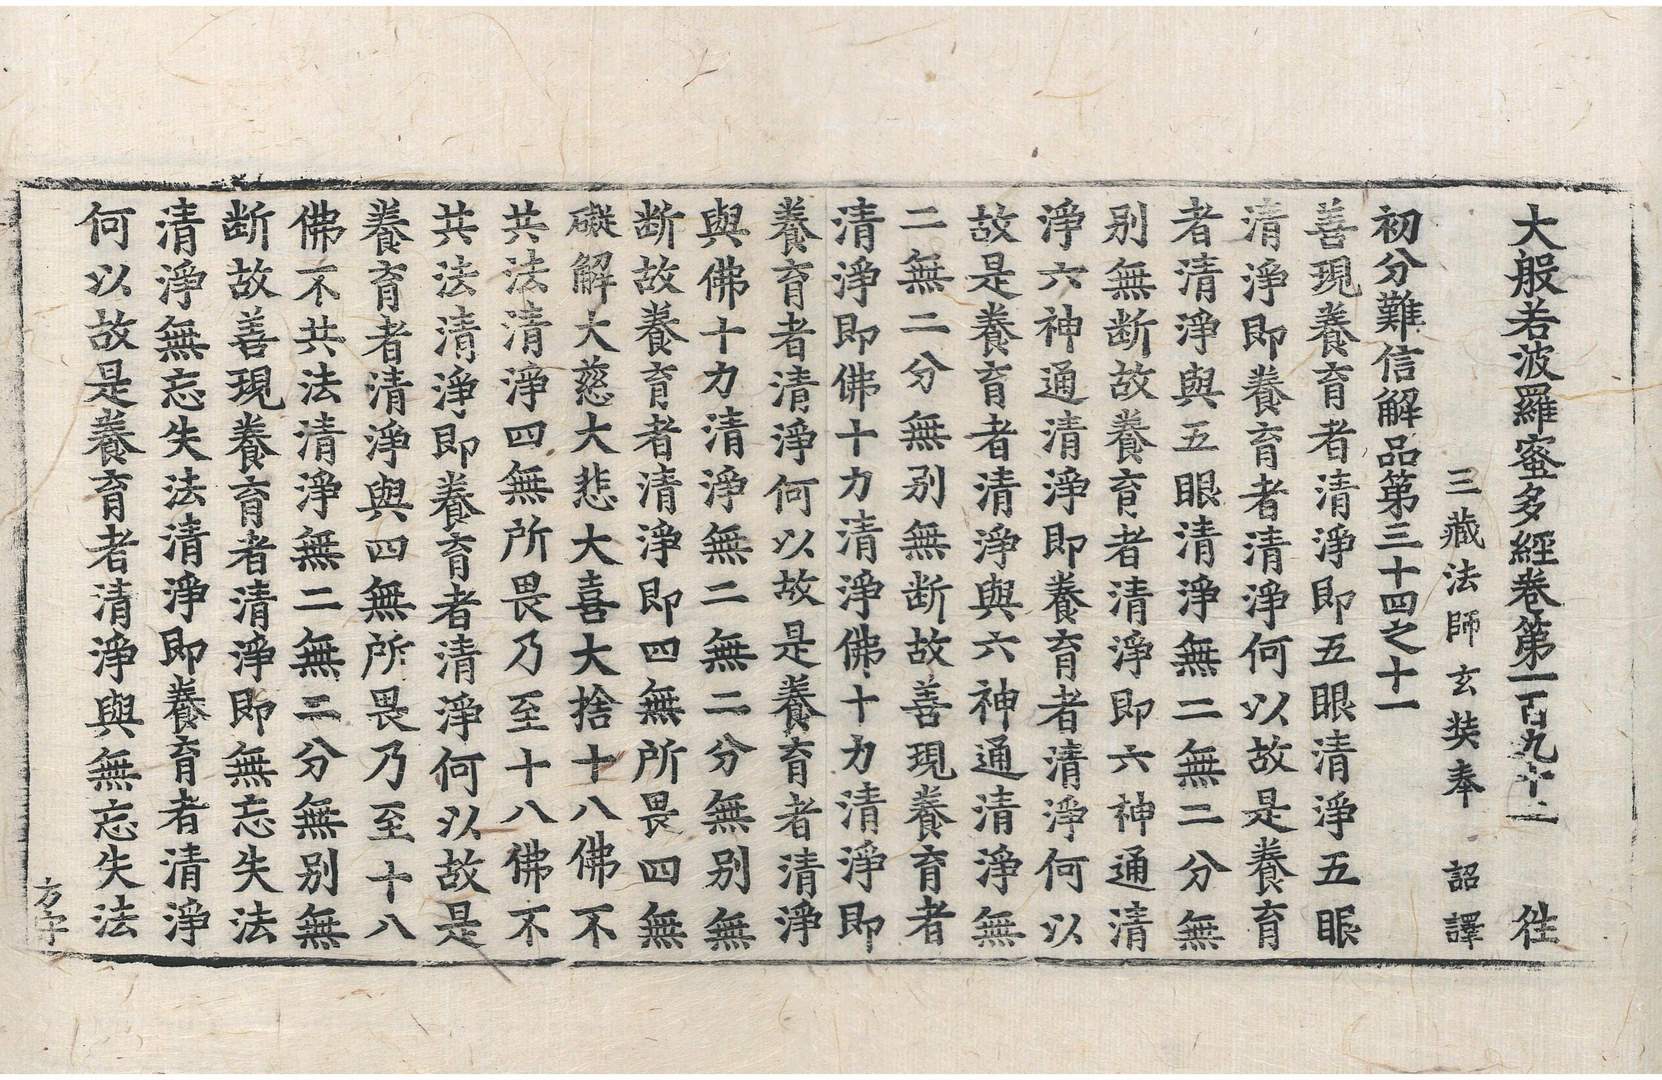 大般若波羅蜜多經卷第一百九十二 徃
三藏法師玄奘奉 詔譯
初分難信解品第三十四之十一
善現養育者清淨即五眼清淨五眼
清淨即養育者清淨何以故是養育
者清淨與五眼清淨無二無二分無
别無断故養育者清淨即六神通清
淨六神通清淨即養育者清淨何以
故是養育者清淨與六神通清淨無
二無二分無别無断故善現養育者
清淨即佛十力清淨佛十力清淨即
養育者清淨何以故是養育者清淨
與佛十力清淨無二無二分無别無
断故養育者清淨即四無所畏四無
礙解大慈大悲大喜大捨十八佛不
共法清淨四無所畏乃至十八佛不
共法清淨即養育者清淨何以故是
養育者清淨與四無所畏乃至十八
佛不共法清淨無二無二分無别無
断故善現養育者清淨即無忘失法
清淨無忘失法清淨即養育者清淨
何以故是養育者清淨與無忘失法
方宇